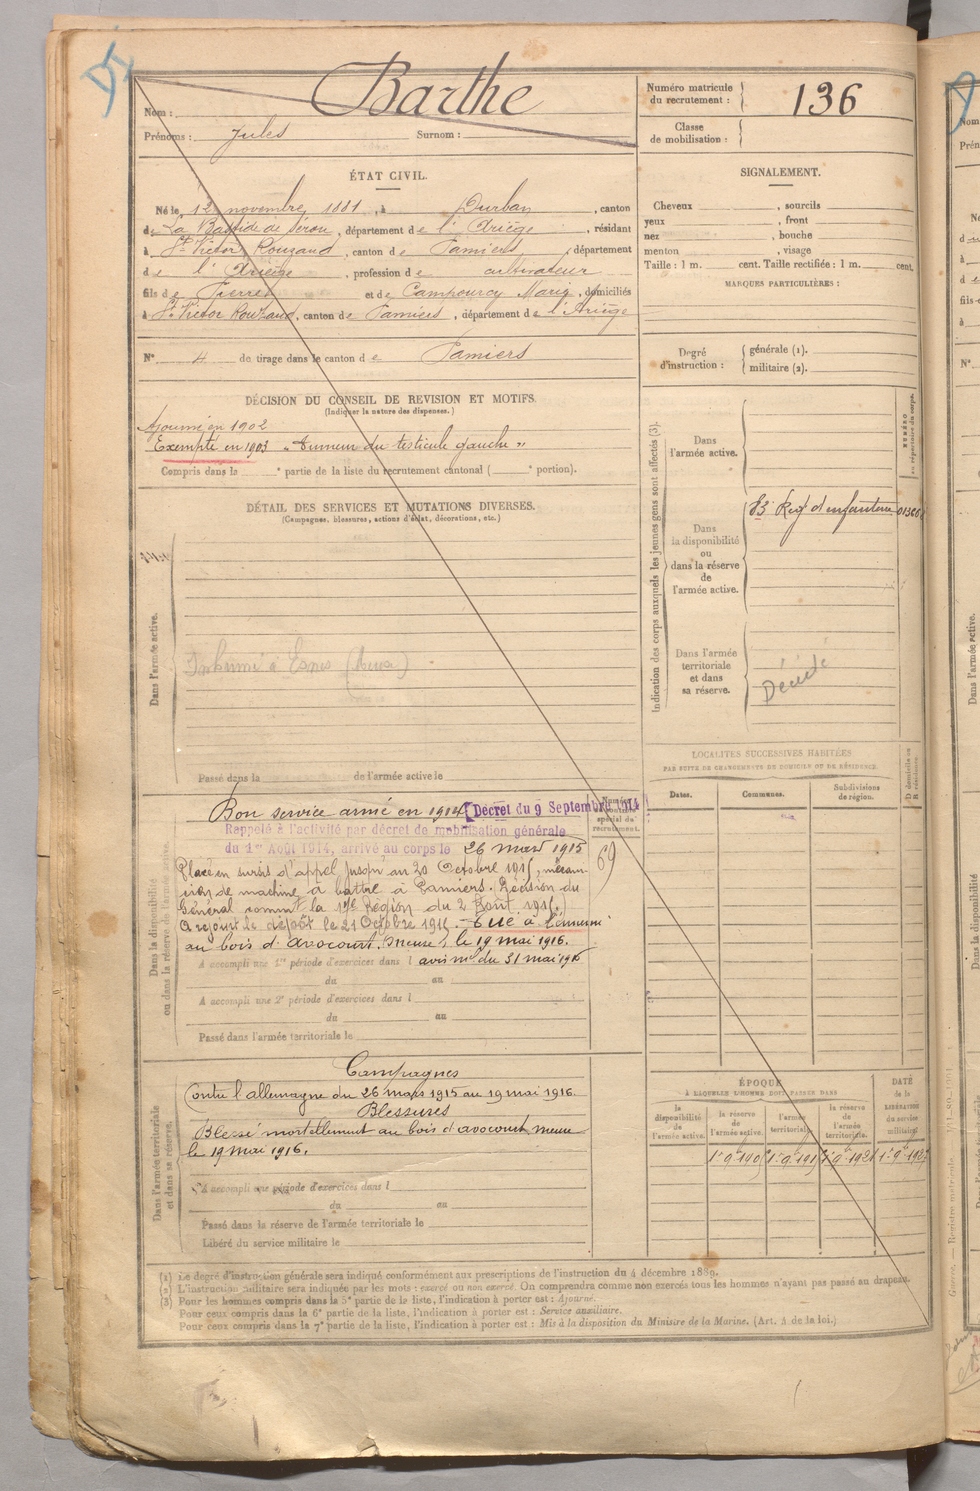 Barthe
Nom :
Prénoms : Jules Surnom :
Numéro matricule du recrutement : 136
Classe de mobilisation :
ÉTAT CIVIL.
Né le 12 novembre 1881, à Durban, canton
de La Bastide de Sérou, département de l'Ariège, résidant
à St Victor Rouzaud, canton de Pamiers, département
de l'Ariège, profession de cultivateur
fils de Pierre et de Campourcy Marie, domiciliés
à St Victor Rouzaud, canton de Pamiers, département de l'Ariège
N° 4 de tirage dans le canton de Pamiers
SIGNALEMENT.
Cheveux , sourcils
yeux , front
nez , bouche
menton , visage
Taille : 1 m. cent. Taille rectifiée : 1 m. cent.
MARQUES PARTICULIÈRES :
Degré d'instruction : générale (1).
militaire (2).
DÉCISION DU CONSEIL DE REVISION ET MOTIFS.
(Indiquer la nature des dispenses.)
Ajourné en 1902
Exempté en 1903 "Tumeur du testicule gauche"
Compris dans la ° partie de la liste du recrutement cantonal ( ° portion).
DÉTAIL DES SERVICES ET MUTATIONS DIVERSES.
(Campagnes, blessures, actions d'éclat, décorations, etc.)
Dans l'armée active.
Inhumé à Esnes (Meuse)
Passé dans la de l'armée active le
Indication des corps auxquels les jeunes gens sont affectés (3).
NUMÉRO au répertoire du corps.
Dans l'armée active.
Dans la disponibilité ou dans la réserve de l'armée active.
83 Reg d'infanterie
Dans l'armée territoriale et dans sa réserve.
Décédé
LOCALITÉS SUCCESSIVES HABITÉES
PAR SUITE DE CHANGEMENTS DE DOMICILE OU DE RÉSIDENCE.
Dates. Communes. Subdivisions de région. D domicile ou R résidence.
Dans la disponibilité ou dans la réserve de l'armée active.
Bon service armé en 1914 [Décret du 9 Septembre 1914]
Rappelé à l'activité par décret de mobilisation générale
du 1er Août 1914, arrivé au corps le 26 mars 1915
Placé en sursis d'appel jusqu'au 20 Octobre 1915, mécani-
cien de machine à battre à Pamiers. Décision du
Général commt la 17e Région du 2 Août 1915.
A rejoint le dépôt le 21 Octobre 1915. Tué à l'ennemi
au bois d'avocourt, Meuse, le 19 mai 1916.
avis ml du 31 mai 1916
Numéro au contrôle spécial du recrutement.
69
A accompli une 1re période d'exercices dans l
du au
A accompli une 2e période d'exercices dans l
du au
Passé dans l'armée territoriale le
Dans l'armée territoriale et dans sa réserve.
Campagnes
Contre l'allemagne du 26 mars 1915 au 19 mai 1916.
Blessures
Blessé mortellement au bois d'avocourt, meuse
le 19 mai 1916.
A accompli une période d'exercices dans l
du au
Passé dans la réserve de l'armée territoriale le
Libéré du service militaire le
ÉPOQUE
À LAQUELLE L'HOMME DOIT PASSER DANS
la disponibilité de l'armée active. la réserve de l'armée active. l'armée territoriale. la réserve de l'armée territoriale.
DATE de la LIBÉRATION du service militaire.
(1) Le degré d'instruction générale sera indiqué conformément aux prescriptions de l'instruction du 4 décembre 1889.
(2) L'instruction militaire sera indiquée par les mots : exercé ou non exercé. On comprendra comme non exercés tous les hommes n'ayant pas passé au drapeau.
(3) Pour les hommes compris dans la 5e partie de la liste, l'indication à porter est : Ajourné.
Pour ceux compris dans la 6e partie de la liste, l'indication à porter est : Service auxiliaire.
Pour ceux compris dans la 7e partie de la liste, l'indication à porter est : Mis à la disposition du Ministre de la Marine. (Art. 4 de la loi.)